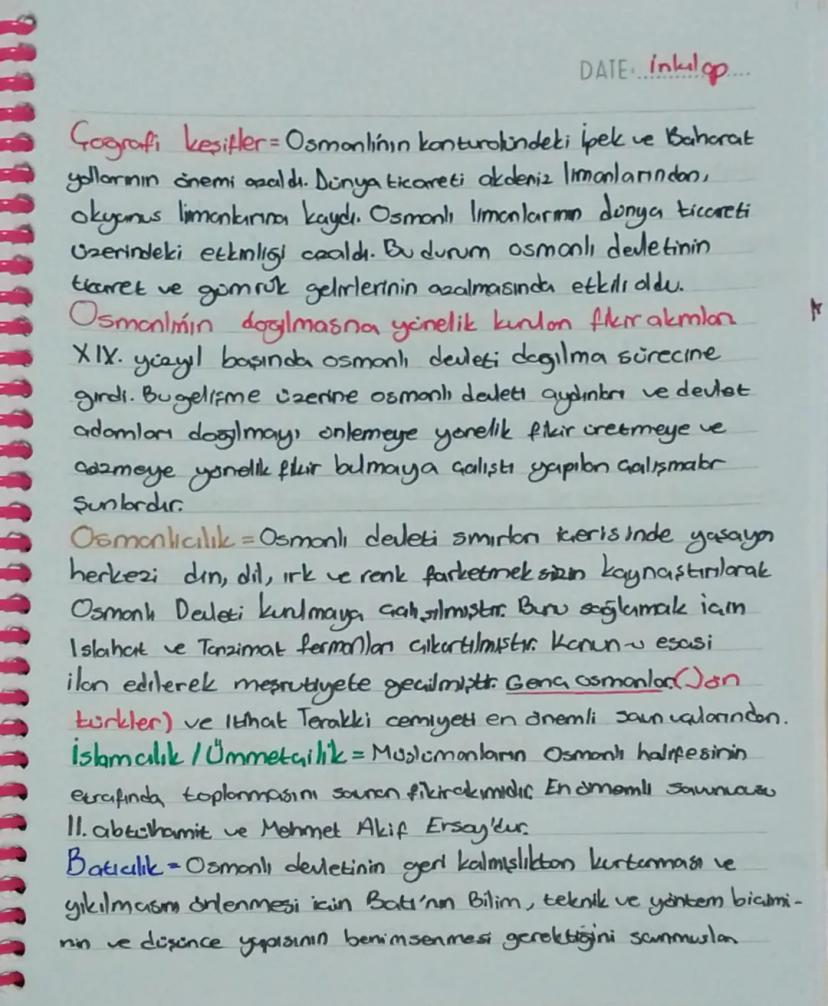 DATE: inkılap
Coğrafi keşifler = Osmanlı'nın konturolündeki İpek ve Baharat
yollarının önemi azaldı. Dünya ticareti akdeniz limanlarından,
okyanus limanlarına kaydı. Osmanlı limanlarının dünya ticareti
üzerindeki etkinliği azaldı. Bu durum osmanlı devletinin
ticaret ve gümrük gelirlerinin azalmasında etkili oldu.
Osmanlının dağılmasına yönelik kurulan fikir akımları
XIX. yüzyıl başında osmanlı devleti dağılma sürecine
girdi. Bu gelişme üzerine osmanlı devleti aydınları ve devlet
adamları dağılmayı önlemeye yönelik fikir üretmeye ve
çözmeye yönelik fikir bulmaya çalıştı yapılan çalışmalar
şunlardır.
Osmanlıcılık = Osmanlı devleti sınırları içerisinde yaşayan
herkezi din, dil, ırk ve renk farketmeksizin kaynaştırılarak
Osmanlı Devleti kurulmaya çalışılmıştır. Bunu sağlamak için
Islahat ve Tanzimat fermanları çıkartılmıştır. Kanun-u esasi
ilan edilerek meşrutiyete geçilmiştir. Genç osmanlılar (Jön
türkler) ve İttihat Terakki cemiyeti en önemli savunucalarından.
İslamcılık / Ümmetçilik = Müslümanların Osmanlı halifesinin
etrafında toplanmasını savunan fikir akımıdır. En önemli savunucusu
II. abtülhamit ve Mehmet Akif Ersoy'dur.
Batıcılık = Osmanlı devletinin geri kalmışlıktan kurtarması ve
yıkılmasını önlenmesi için Batı'nın Bilim, teknik ve yöntem biçimi-
nin ve düşünce yapısının benimsenmesi gerektiğini savunmuşlar